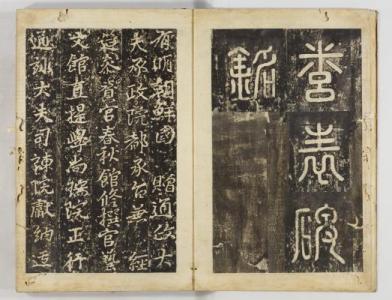 表碑
銘
有明朝鮮國 贈通政大
夫承政院都承旨兼 經
筵參贊官春秋館修撰官藝
文館直提學尚瑞院正行
通訓大夫司諫院獻納